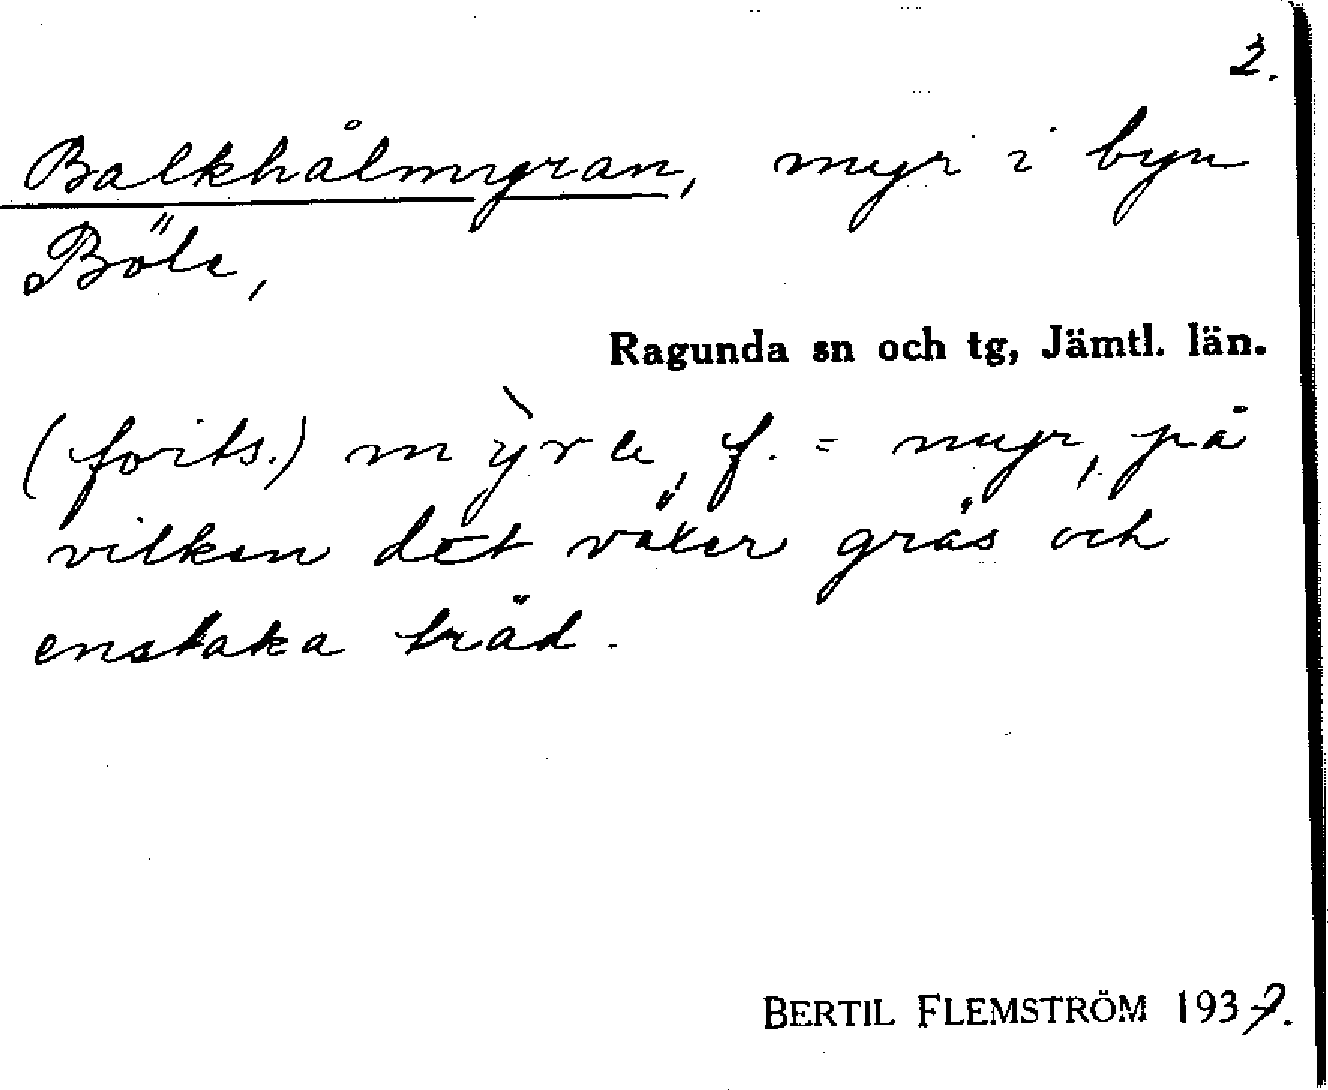 2.
Balkhålmyran, myr i byn
Böle,
Ragunda sn och tg, Jämtl. län.
(forts.) mỳra, f. = myr, på
vilken det växer gräs och
enstaka träd.
BERTIL FLEMSTRÖM 1937.